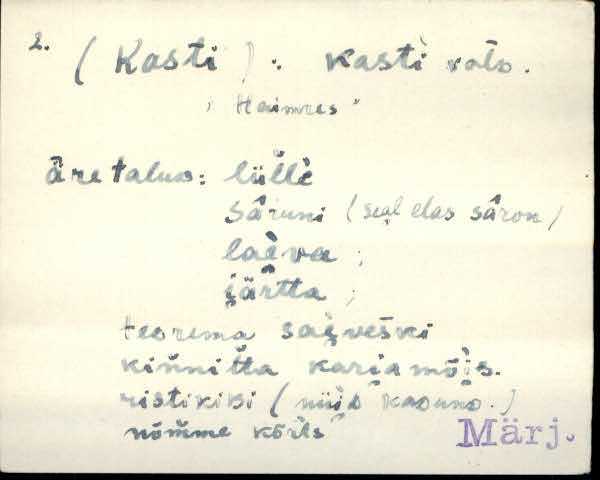 2. (Kasti): kasti vald.
"Haimres"
äretalus: lüllè
sâruni (seal elas sâron)
laèva ;
järtta ;
teorema saeveški
kinnitta kariamõis.
ristikivi (nüid kadund.)
nõmme kõrts
Märj.